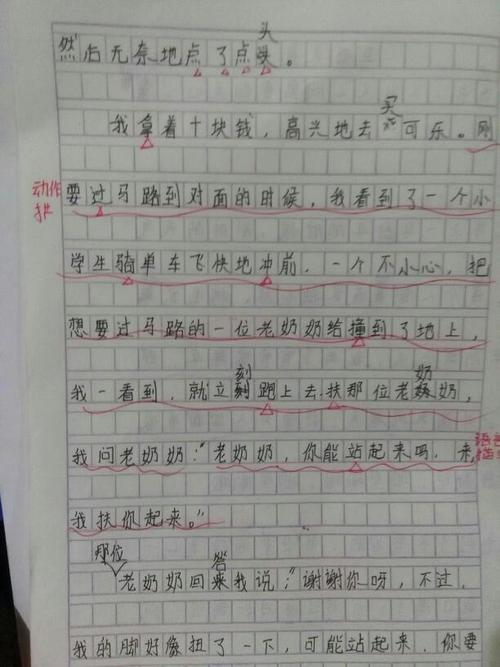 然后无奈地点了点头。
我拿着十块钱，高兴地去买可乐。刚
动作
要过马路到对面的时候，我看到了一个小
学生骑单车飞快地冲前，一个不小心，把
想要过马路的一位老奶奶给撞到了地上，
我一看到，就立刻跑上去扶那位老奶奶，
我问老奶奶："老奶奶，你能站起来吗，来，
语言
我扶你起来。"
那位老奶奶回答我说："谢谢你呀，不过，
我的脚好像扭了一下，可能站起来，你要